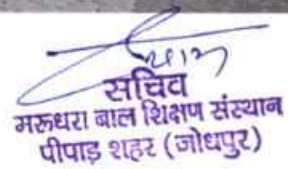 सचिव
मरूधरा बाल शिक्षण संस्थान
पीपाड़ शहर (जोधपुर)